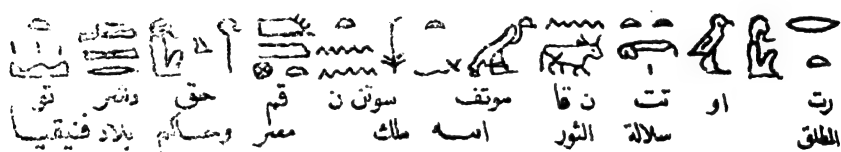 رت او تت ن قا موتف سوتن ن قم حق دنسر تو
المطلق سلالة الثور امه ملك مصر وحاكم بلاد فنيقيا